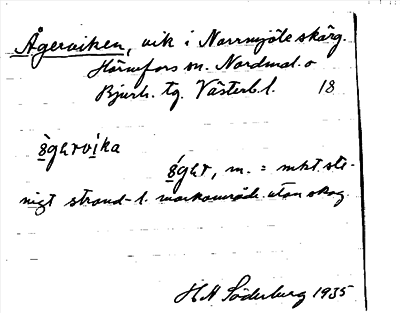 Ågerviken, vik i Norrmjöle skärg.
Hörnefors sn. Nordmal. o
Bjurh. tg. Västerb. l. 18
ågərvika
ågər, m. = mkt ste-
nigt strand- l. markområde utan skog
H N Söderberg 1935